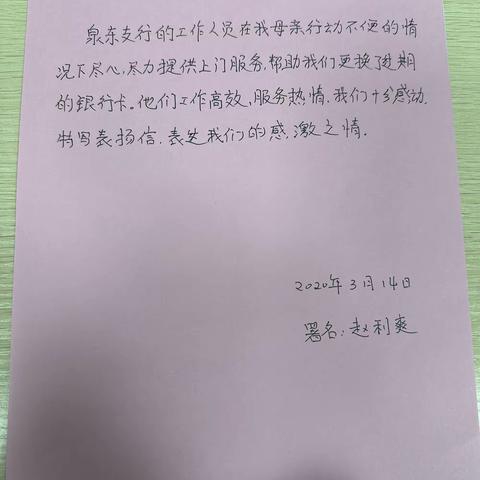 泉东支行的工作人员在我母亲行动不便的情
况下尽心,尽力提供上门服务,帮助我们更换了过期
的银行卡。他们工作高效、服务热情,我们十分感动.
特写表扬信.表达我们的感激之情。
2020年3月14日
署名:赵利爽